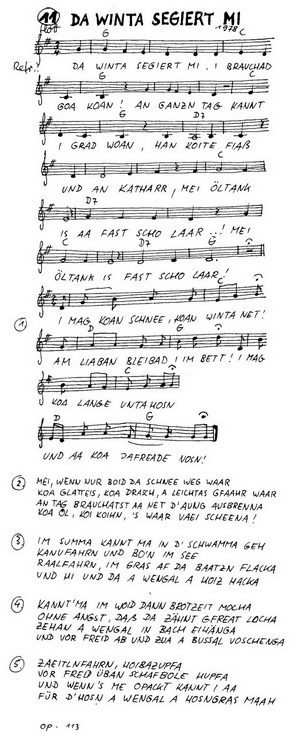 11 DA WINTA SEGIERT MI
flott G 1978 C
Refr.: DA WINTA SEGIERT MI. I BRAUCHAD
G C
GOA KOAN! AN GANZN TAG KANNT
G D7
I GRAD WOAN, HAN KOITE FIAß
G C
UND AN KATHARR, MEI ÖLTANK
D7 G
IS AA FAST SCHO LAAR...! MEI
C D7 G
ÖLTANK IS FAST SCHO LAAR!
C
I MAG KOAN SCHNEE, KOAN WINTA NET!
1 D G
AM LIABAN BLEIBAD I IM BETT! I MAG
C
KOA LANGE UNTAHOSN
D G
UND AA KOA DAFREADE NOSN!
2 MEI, WENN NUR BOID DA SCHNEE WEG WAAR
KOA GLATTEIS, KOA DRAKH, A LEICHTAS GFAAHR WAAR
AN TAG BRAUCHATST AA NET D'AUNG AUSBRENNA
KOA ÖL, KOI KOIHN, 'S WAAR VAEI SCHEENA!
3 IM SUMMA KANNT MA IN D'SCHWAMMA GEH
KANUFAHRN UND BO'N IM SEE
RAALFAHRN, IM GRAS AF DA BAATZN FLACKA
UND HI UND DA A WENGAL A HOIZ HACKA
4 KANNT'MA IM WOID DANN BROTZEIT MOCHA
OHNE ANGST, DAß DA ZÄHNT GFREAT LOCHA
ZEHAN A WENGAL IN BACH EIHÄNGA
UND VOR FREID AB UND ZUA A BUSSAL VOSCHENGA
5 ZAEITLNFAHRN, HOIBAZUPFA
VOR FREID ÜBAN SCHAFBOLE HUPFA
UND WENN'S ME OPACKT KANNT I AA
FÜR D'HOSN A WENGAL A HOSNGRAS MAAH
OP. 113